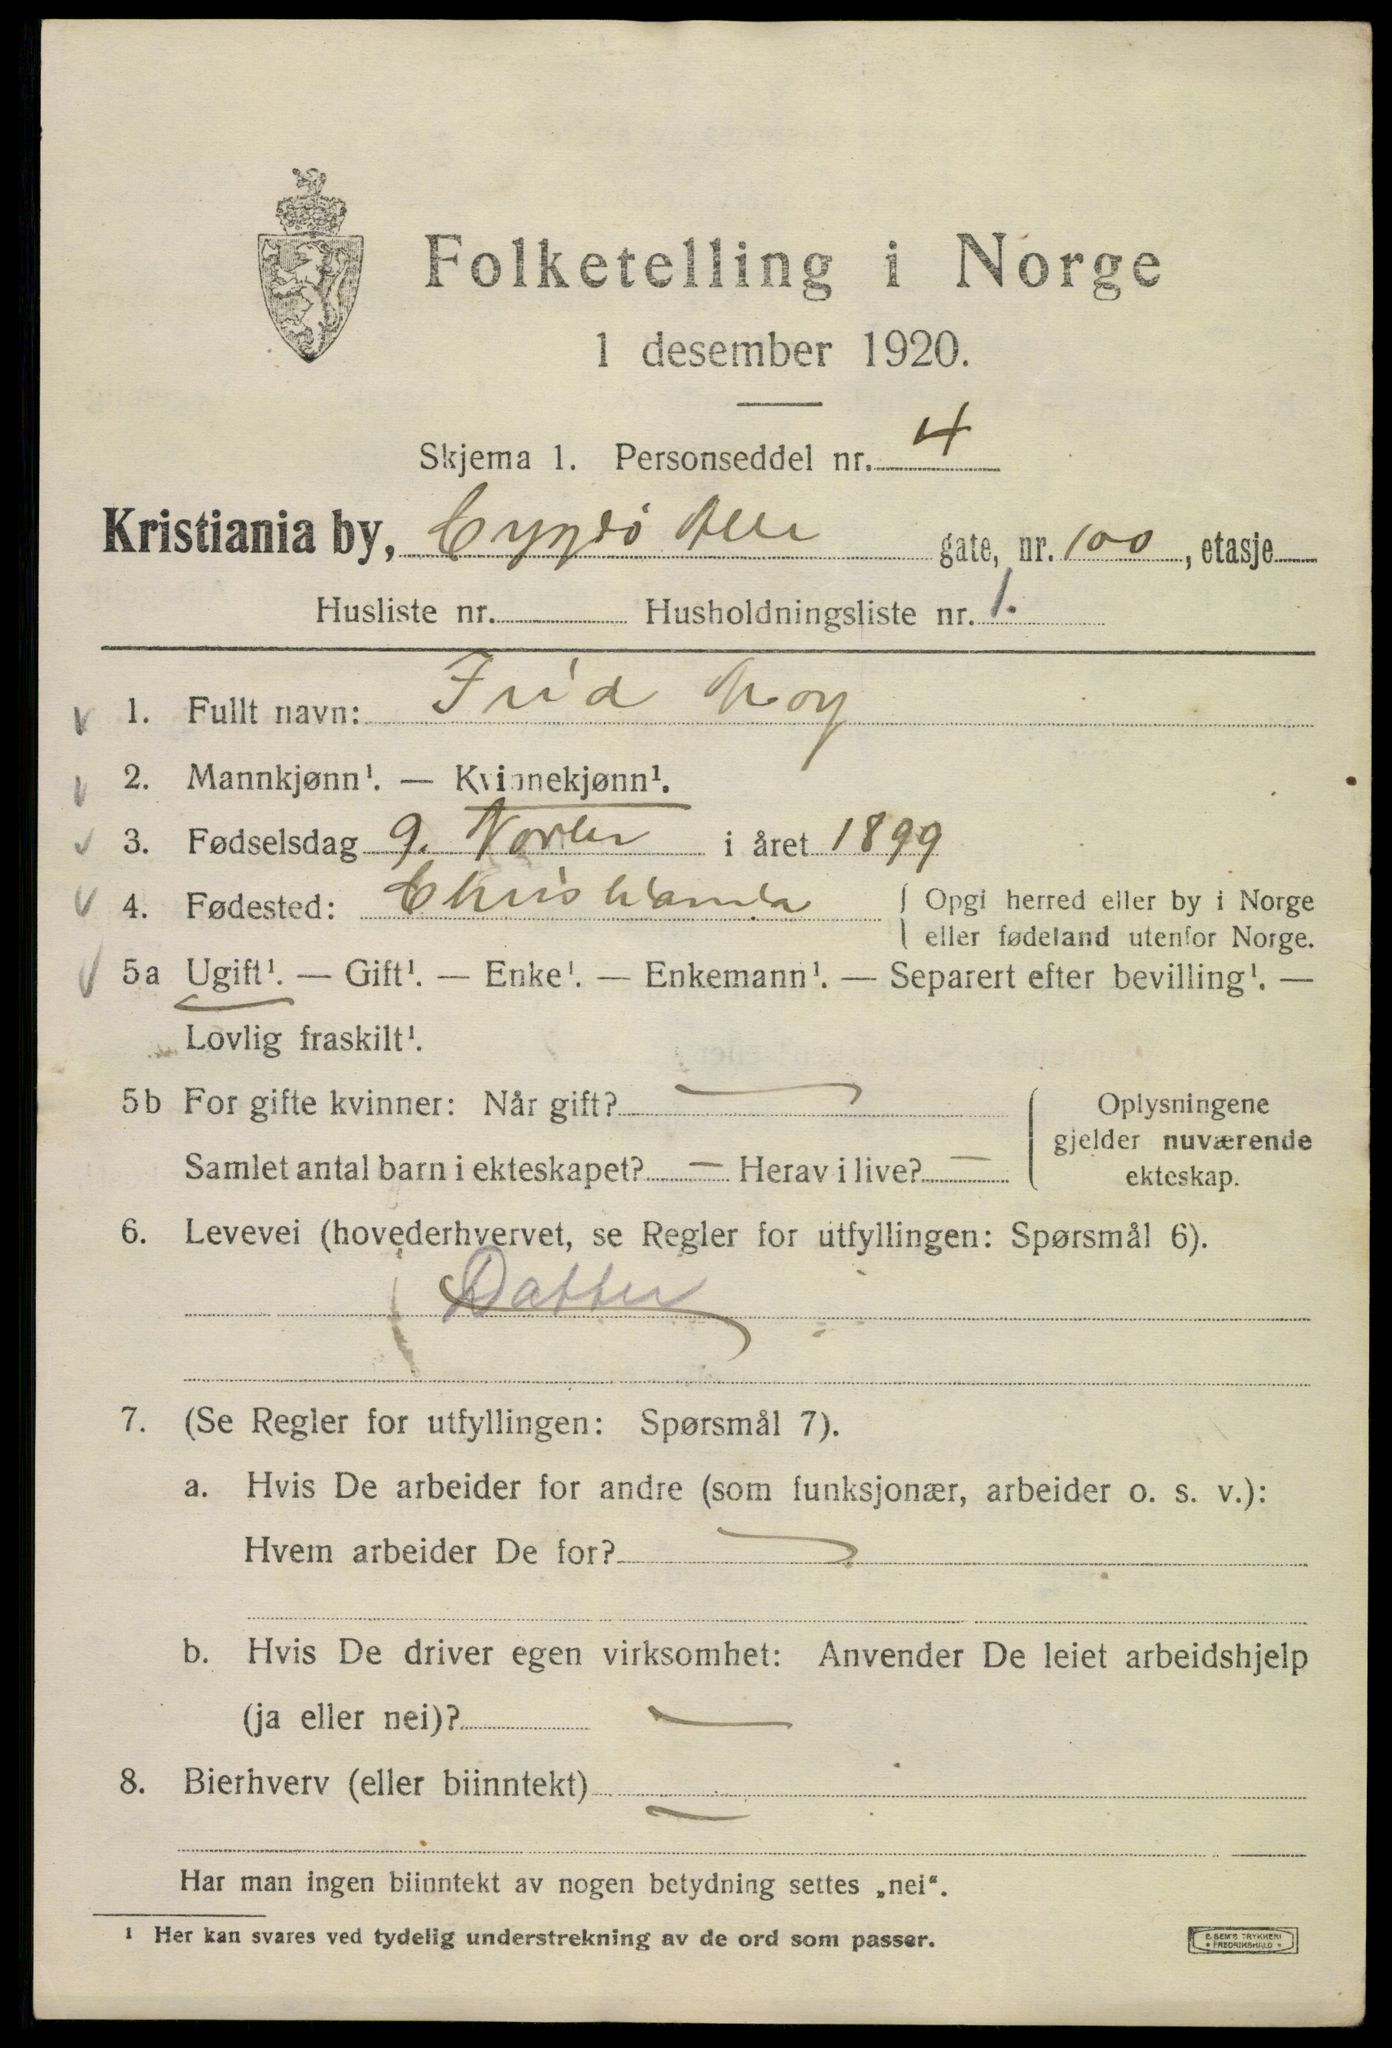 Folketelling i Norge
1 desember 1920.
Skjema 1. Personseddel nr. 4
Kristiania by, Bygdö Alle gate, nr. 100, etasje
Husliste nr. Husholdningsliste nr. 1.
1. Fullt navn: Frid
2. Mannkjønn¹. — Kvinnekjønn¹.
3. Fødselsdag 9. Novbr i året 1899
4. Fødested: Christiania { Opgi herred eller by i Norge
eller fødeland utenfor Norge.
5a Ugift¹. — Gift¹. — Enke¹. — Enkemann¹. — Separert efter bevilling¹. —
Lovlig fraskilt¹.
5b For gifte kvinner: Når gift? —
Samlet antal barn i ekteskapet? — Herav i live? —
{ Oplysningene
gjelder nuværende
ekteskap.
6. Levevei (hovederhvervet, se Regler for utfyllingen: Spørsmål 6).
Datter
7. (Se Regler for utfyllingen: Spørsmål 7).
a. Hvis De arbeider for andre (som funksjonær, arbeider o. s. v.):
Hvem arbeider De for? —
b. Hvis De driver egen virksomhet: Anvender De leiet arbeidshjelp
(ja eller nei)? —
8. Bierhverv (eller biinntekt) —
Har man ingen biinntekt av nogen betydning settes „nei“.
¹ Her kan svares ved tydelig understrekning av de ord som passer.
E. SEM'S TRYKKERI
FREDRIKSHALD